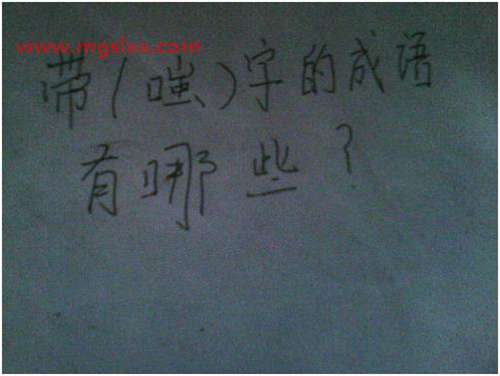 www.mgslss.com
带(嗤)字的成语
有哪些？